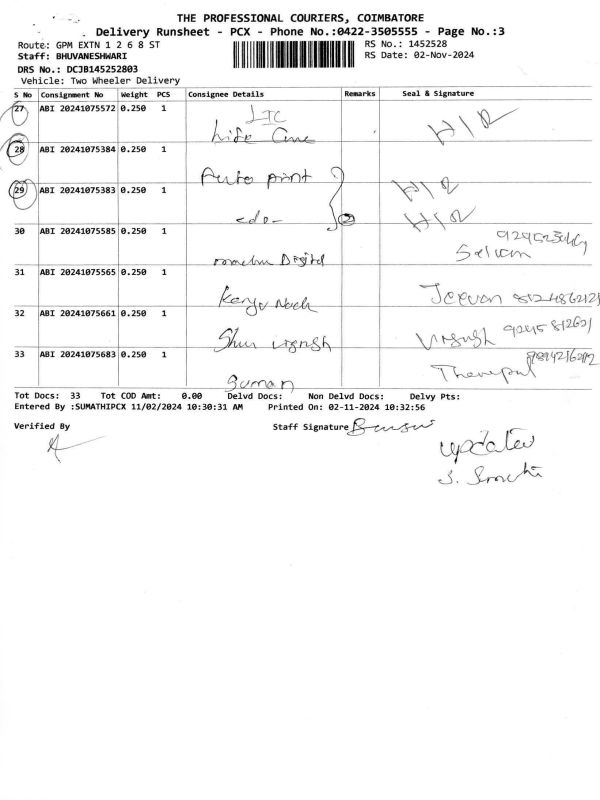 THE PROFESSIONAL COURIERS, COIMBATORE
Delivery Runsheet - PCX - Phone No.:0422-3505555 - Page No.:3
Route: GPM EXTN 1 2 6 8 ST
RS No.: 1452528
Staff: BHUVANESHWARI
RS Date: 02-Nov-2024
DRS No.: DCJB145252803
Vehicle: Two Wheeler Delivery
S No Consignment No Weight PCS Consignee Details Remarks Seal & Signature
27 ABI 20241075572 0.250 1
Life
28 ABI 20241075384 0.250 1
Auto print
29 ABI 20241075383 0.250 1
-do-
30 ABI 20241075585 0.250 1
Digital
Selvam
31 ABI 20241075565 0.250 1
Jeevan
32 ABI 20241075661 0.250 1
33 ABI 20241075683 0.250 1
Suman
Tot Docs: 33 Tot COD Amt: 0.00 Delvd Docs: Non Delvd Docs: Delvy Pts:
Entered By :SUMATHIPCX 11/02/2024 10:30:31 AM Printed On: 02-11-2024 10:32:56
Verified By Staff Signature
updated